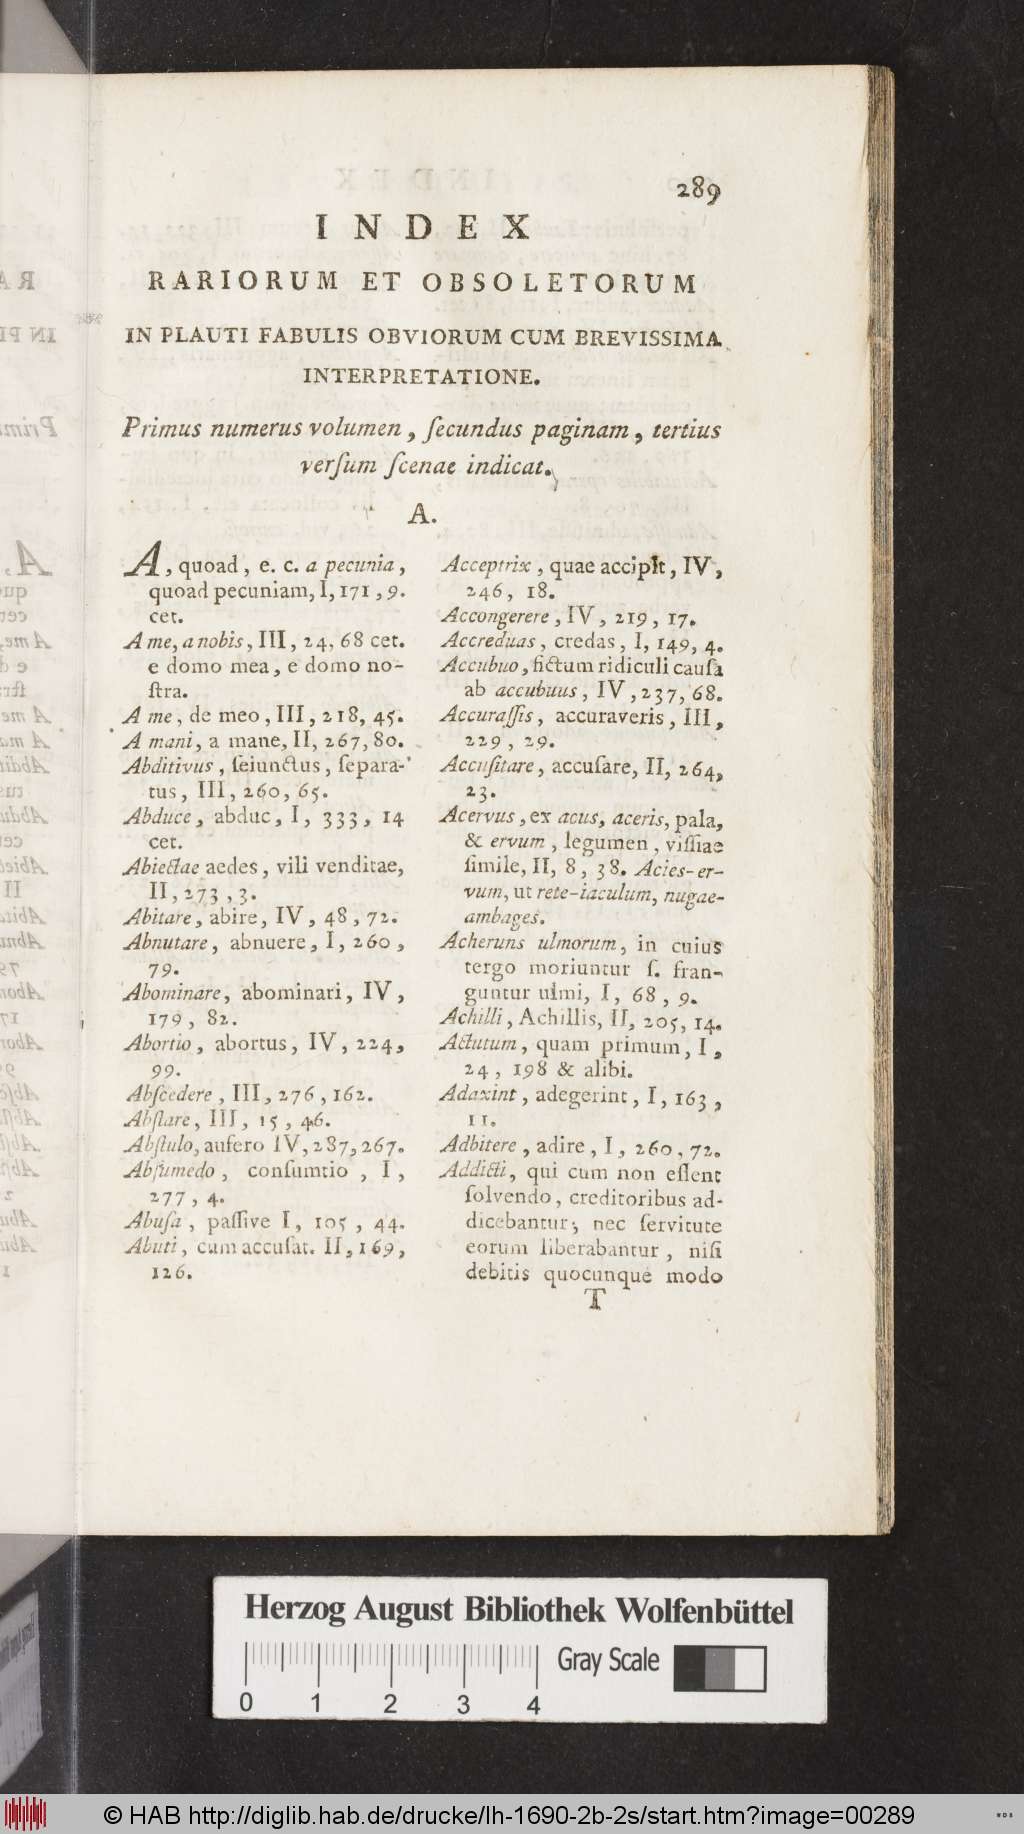 289
INDEX
RARIORUM ET OBSOLETORUM
IN PLAUTI FABULIS OBVIORUM CUM BREVISSIMA
INTERPRETATIONE.
Primus numerus volumen, ſecundus paginam, tertius
verſum ſcenae indicat.
A.
A, quoad, e. c. a pecunia,
quoad pecuniam, I, 171, 9.
cet.
A me, a nobis, III, 24, 68 cet.
e domo mea, e domo no-
ſtra.
A me, de meo, III, 218, 45.
A mani, a mane, II, 267, 80.
Abditivus, ſeiunctus, ſepara-
tus, III, 260, 65.
Abduce, abduc, I, 333, 14
cet.
Abiectae aedes, vili venditae,
II, 273, 3.
Abitare, abire, IV, 48, 72.
Abnutare, abnuere, I, 260,
79.
Abominare, abominari, IV,
179, 82.
Abortio, abortus, IV, 224,
99.
Abſcedere, III, 276, 162.
Abſtare, III, 15, 46.
Abſtulo, aufero IV, 287, 267.
Abſumedo, conſumtio, I,
277, 4.
Abuſa, paſſive I, 105, 44.
Abuti, cum accuſat. II, 169,
126.
Acceptrix, quae accipit, IV,
246, 18.
Accongerere, IV, 219, 17.
Accreduas, credas, I, 149, 4.
Accubuo, fictum ridiculi cauſa
ab accubuus, IV, 237, 68.
Accuraſſis, accuraveris, III,
229, 29.
Accuſitare, accuſare, II, 264,
23.
Acervus, ex acus, aceris, pala,
& ervum, legumen, viſſiae
ſimile, II, 8, 38. Acies-er-
vum, ut rete-iaculum, nugae-
ambages.
Acheruns ulmorum, in cuius
tergo moriuntur ſ. fran-
guntur ulmi, I, 68, 9.
Achilli, Achillis, II, 205, 14.
Actutum, quam primum, I,
24, 198 & alibi.
Adaxint, adegerint, I, 163,
11.
Adbitere, adire, I, 260, 72.
Addicti, qui cum non eſſent
ſolvendo, creditoribus ad-
dicebantur; nec ſervitute
eorum liberabantur, niſi
debitis quocunque modo
T
Herzog August Bibliothek Wolfenbüttel
Gray Scale
0 1 2 3 4
© HAB http://diglib.hab.de/drucke/lh-1690-2b-2s/start.htm?image=00289